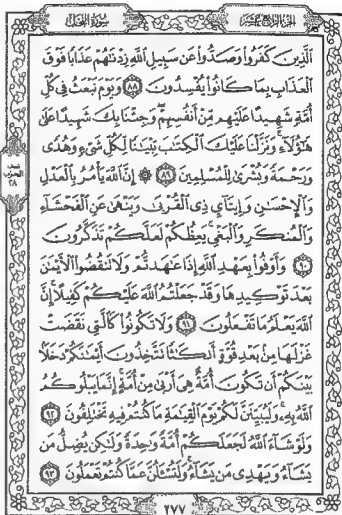 الجزء الرابع عشر
سورة النحل
ٱلَّذِينَ كَفَرُوا۟ وَصَدُّوا۟ عَن سَبِيلِ ٱللَّهِ زِدْنَٰهُمْ عَذَابًا فَوْقَ
ٱلْعَذَابِ بِمَا كَانُوا۟ يُفْسِدُونَ ٨٨ وَيَوْمَ نَبْعَثُ فِى كُلِّ
أُمَّةٍ شَهِيدًا عَلَيْهِم مِّنْ أَنفُسِهِمْ وَجِئْنَا بِكَ شَهِيدًا عَلَىٰ
هَٰٓؤُلَآءِ وَنَزَّلْنَا عَلَيْكَ ٱلْكِتَٰبَ تِبْيَٰنًا لِّكُلِّ شَىْءٍ وَهُدًى
وَرَحْمَةً وَبُشْرَىٰ لِلْمُسْلِمِينَ ٨٩ ۞ إِنَّ ٱللَّهَ يَأْمُرُ بِٱلْعَدْلِ
وَٱلْإِحْسَٰنِ وَإِيتَآئِ ذِى ٱلْقُرْبَىٰ وَيَنْهَىٰ عَنِ ٱلْفَحْشَآءِ
وَٱلْمُنكَرِ وَٱلْبَغْىِ يَعِظُكُمْ لَعَلَّكُمْ تَذَكَّرُونَ
٩٠ وَأَوْفُوا۟ بِعَهْدِ ٱللَّهِ إِذَا عَٰهَدتُّمْ وَلَا تَنقُضُوا۟ ٱلْأَيْمَٰنَ
بَعْدَ تَوْكِيدِهَا وَقَدْ جَعَلْتُمُ ٱللَّهَ عَلَيْكُمْ كَفِيلًا إِنَّ
ٱللَّهَ يَعْلَمُ مَا تَفْعَلُونَ ٩١ وَلَا تَكُونُوا۟ كَٱلَّتِى نَقَضَتْ
غَزْلَهَا مِنۢ بَعْدِ قُوَّةٍ أَنكَٰثًا تَتَّخِذُونَ أَيْمَٰنَكُمْ دَخَلًۢا
بَيْنَكُمْ أَن تَكُونَ أُمَّةٌ هِىَ أَرْبَىٰ مِنْ أُمَّةٍ إِنَّمَا يَبْلُوكُمُ
ٱللَّهُ بِهِۦ وَلَيُبَيِّنَنَّ لَكُمْ يَوْمَ ٱلْقِيَٰمَةِ مَا كُنتُمْ فِيهِ تَخْتَلِفُونَ ٩٢
وَلَوْ شَآءَ ٱللَّهُ لَجَعَلَكُمْ أُمَّةً وَٰحِدَةً وَلَٰكِن يُضِلُّ مَن
يَشَآءُ وَيَهْدِى مَن يَشَآءُ وَلَتُسْـَٔلُنَّ عَمَّا كُنتُمْ تَعْمَلُونَ ٩٣
نصف
الحزب
٢٨
٢٧٧